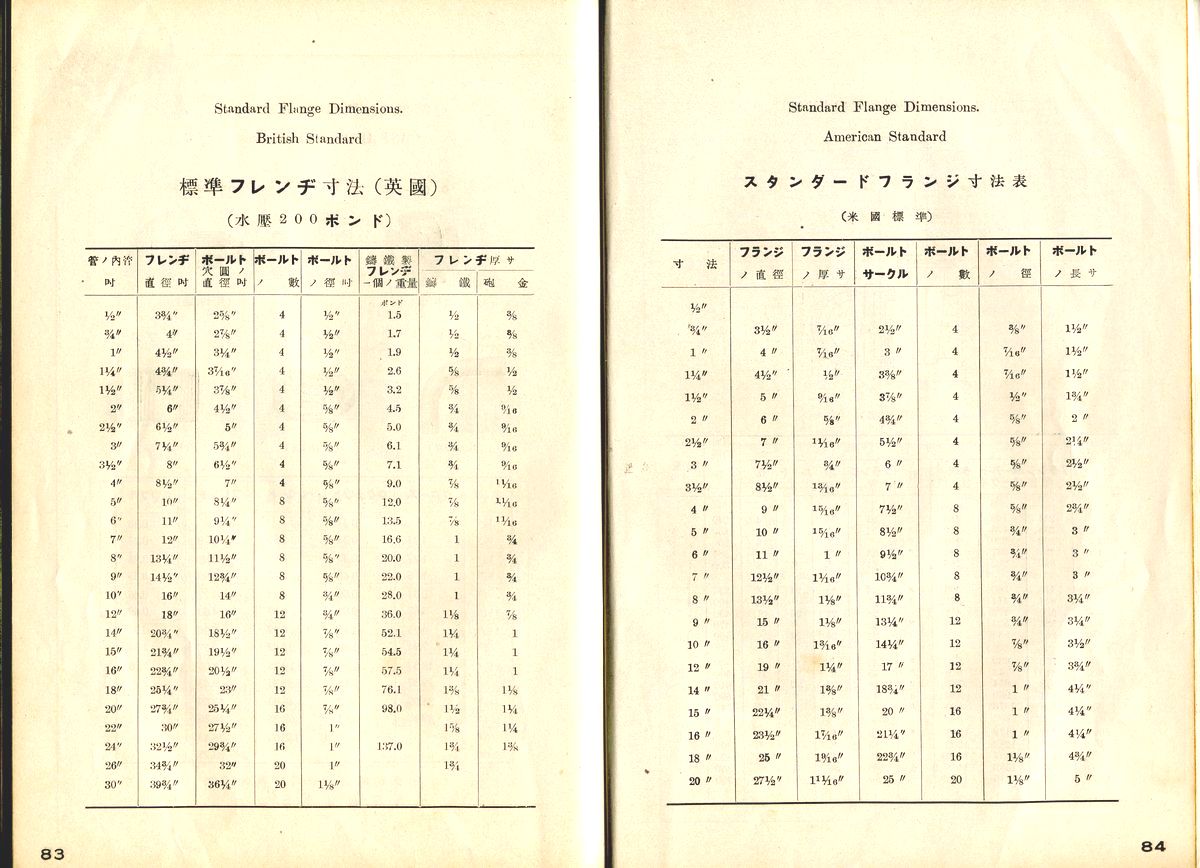 Standard Flange Dimensions.
British Standard
標準フレンヂ寸法(英國)
(水壓200ポンド)
管ノ內徑 フレンヂ ボールト ボールト ボールト 鑄鐵製 フレンヂ厚サ
穴圓ノ フレンヂ
吋 直徑吋 直徑吋 ノ數 ノ徑吋 一個ノ重量 鑄鐵 砲金
ポンド
½" 3¾" 2⅝" 4 ½" 1.5 ½ ⅜
¾" 4" 2⅞" 4 ½" 1.7 ½ ⅜
1" 4½" 3¼" 4 ½" 1.9 ½ ⅜
1¼" 4¾" 37/16" 4 ½" 2.6 ⅝ ½
1½" 5¼" 3⅞" 4 ½" 3.2 ⅝ ½
2" 6" 4½" 4 ⅝" 4.5 ¾ 9/16
2½" 6½" 5" 4 ⅝" 5.0 ¾ 9/16
3" 7¼" 5¾" 4 ⅝" 6.1 ¾ 9/16
3½" 8" 6½" 4 ⅝" 7.1 ¾ 9/16
4" 8½" 7" 4 ⅝" 9.0 ⅞ 11/16
5" 10" 8¼" 8 ⅝" 12.0 ⅞ 11/16
6" 11" 9¼" 8 ⅝" 13.5 ⅞ 11/16
7" 12" 10¼" 8 ⅝" 16.6 1 ¾
8" 13¼" 11½" 8 ⅝" 20.0 1 ¾
9" 14½" 12¾" 8 ⅝" 22.0 1 ¾
10" 16" 14" 8 ¾" 28.0 1 ¾
12" 18" 16" 12 ¾" 36.0 1⅛ ⅞
14" 20¾" 18½" 12 ⅞" 52.1 1¼ 1
15" 21¾" 19½" 12 ⅞" 54.5 1¼ 1
16" 22¾" 20½" 12 ⅞" 57.5 1¼ 1
18" 25¼" 23" 12 ⅞" 76.1 1⅜ 1⅛
20" 27¾" 25¼" 16 ⅞" 98.0 1½ 1¼
22" 30" 27½" 16 1" 1⅝ 1¼
24" 32½" 29¾" 16 1" 137.0 1¾ 1⅜
26" 34¾" 32" 20 1" 1¾
30" 39¾" 36¼" 20 1⅛"
83
Standard Flange Dimensions.
American Standard
スタンダードフランジ寸法表
(米國標準)
寸法 フランジ フランジ ボールト ボールト ボールト ボールト
ノ直徑 ノ厚サ サークル ノ數 ノ徑 ノ長サ
½"
¾" 3½" 7/16" 2½" 4 ⅜" 1½"
1" 4" 7/16" 3" 4 7/16" 1½"
1¼" 4½" ½" 3⅜" 4 7/16" 1½"
1½" 5" 9/16" 3⅞" 4 ½" 1¾"
2" 6" ⅝" 4¾" 4 ⅝" 2"
2½" 7" 11/16" 5½" 4 ⅝" 2¼"
3" 7½" ¾" 6" 4 ⅝" 2½"
3½" 8½" 13/16" 7" 4 ⅝" 2½"
4" 9" 15/16" 7½" 8 ⅝" 2¾"
5" 10" 15/16" 8½" 8 ¾" 3"
6" 11" 1" 9½" 8 ¾" 3"
7" 12½" 1 1/16" 10¾" 8 ¾" 3"
8" 13½" 1⅛" 11¾" 8 ¾" 3¼"
9" 15" 1⅛" 13¼" 12 ¾" 3¼"
10" 16" 1 3/16" 14¼" 12 ⅞" 3½"
12" 19" 1¼" 17" 12 ⅞" 3¾"
14" 21" 1⅜" 18¾" 12 1" 4¼"
15" 22¼" 1⅜" 20" 16 1" 4¼"
16" 23½" 1 7/16" 21¼" 16 1" 4¼"
18" 25" 1 9/16" 22¾" 16 1⅛" 4¾"
20" 27½" 1 11/16" 25" 20 1⅛" 5"
84